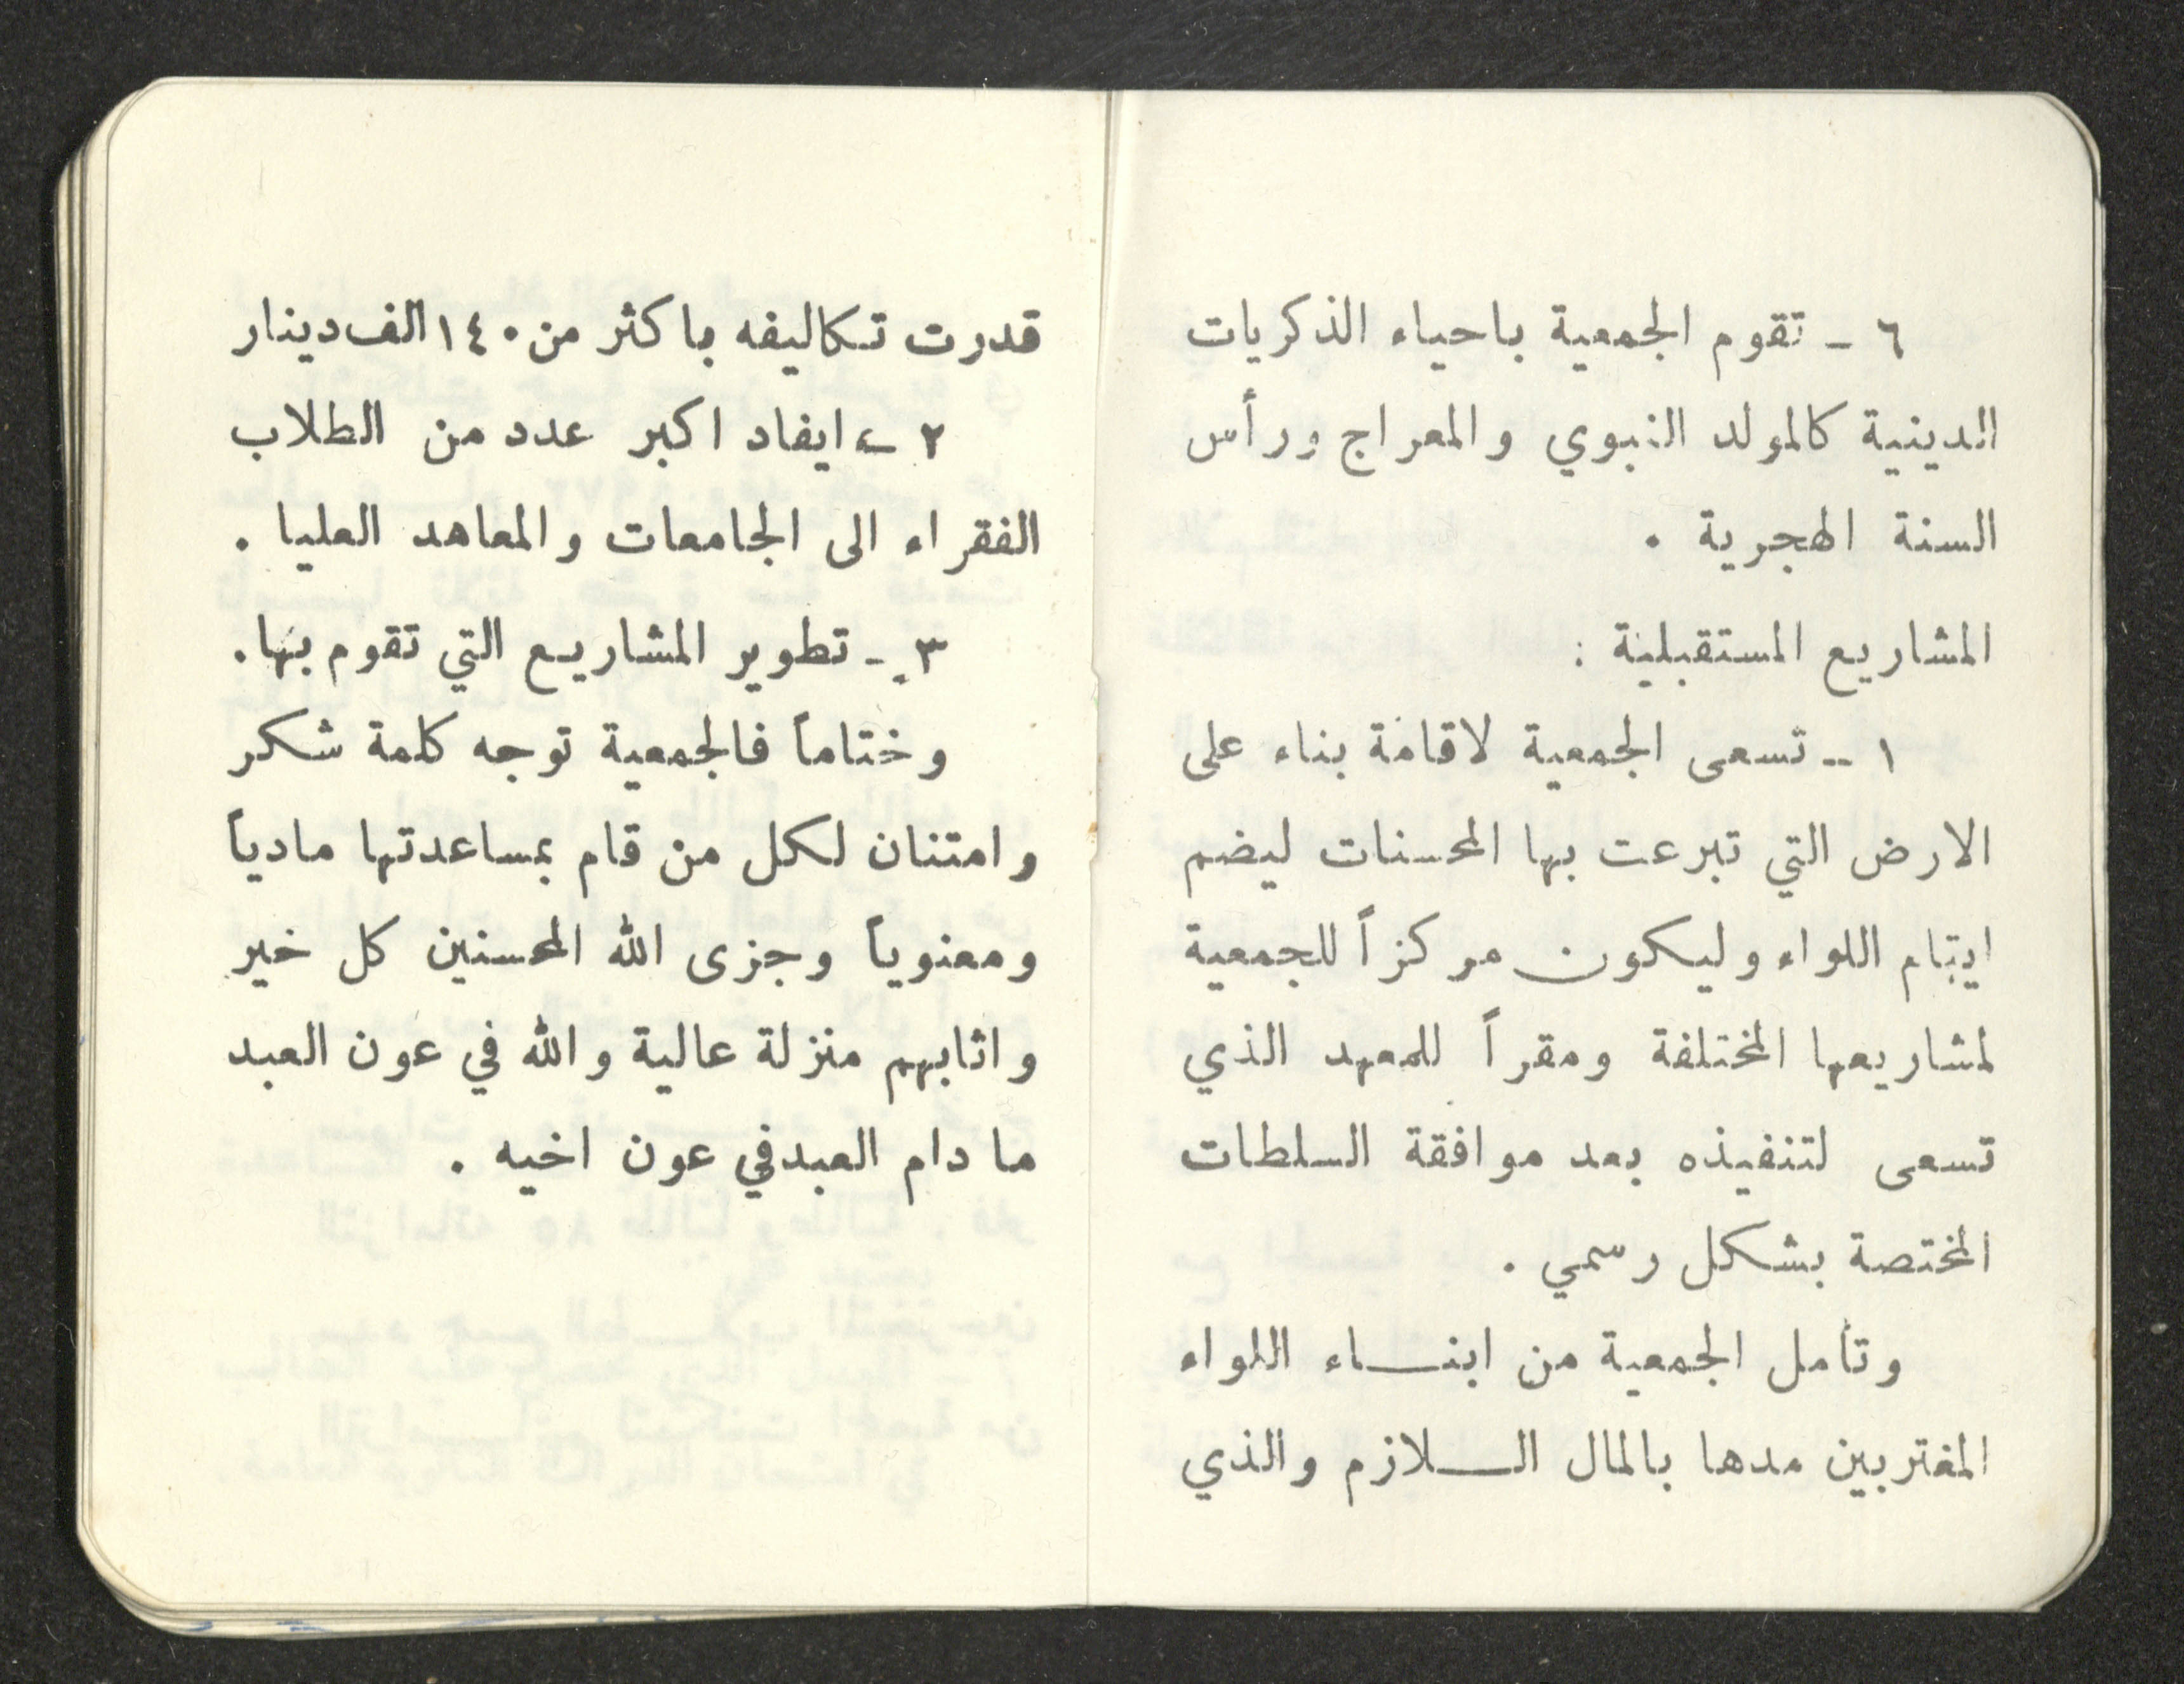 ٦ - تقوم الجمعية باحياء الذكريات
الدينية كالمولد النبوي والمعراج ورأس
السنة الهجرية .
المشاريع المستقبلية :
١ - تسعى الجمعية لاقامة بناء على
الارض التي تبرعت بها المحسنات ليضم
ايتام اللواء وليكون مركزاً للجمعية
لمشاريعها المختلفة ومقراً للمعهد الذي
تسعى لتنفيذه بعد موافقة السلطات
المختصة بشكل رسمي .
وتأمل الجمعية من ابناء اللواء
المغتربين مدها بالمال اللازم والذي
قدرت تكاليفه باكثر من ١٤٠ الف دينار
٢ - ايفاد اكبر عدد من الطلاب
الفقراء الى الجامعات والمعاهد العليا .
٣ - تطوير المشاريع التي تقوم بها .
وختاماً فالجمعية توجه كلمة شكر
وامتنان لكل من قام بمساعدتها مادياً
ومعنوياً وجزى الله المحسنين كل خير
واثابهم منزلة عالية والله في عون العبد
ما دام العبد في عون اخيه .